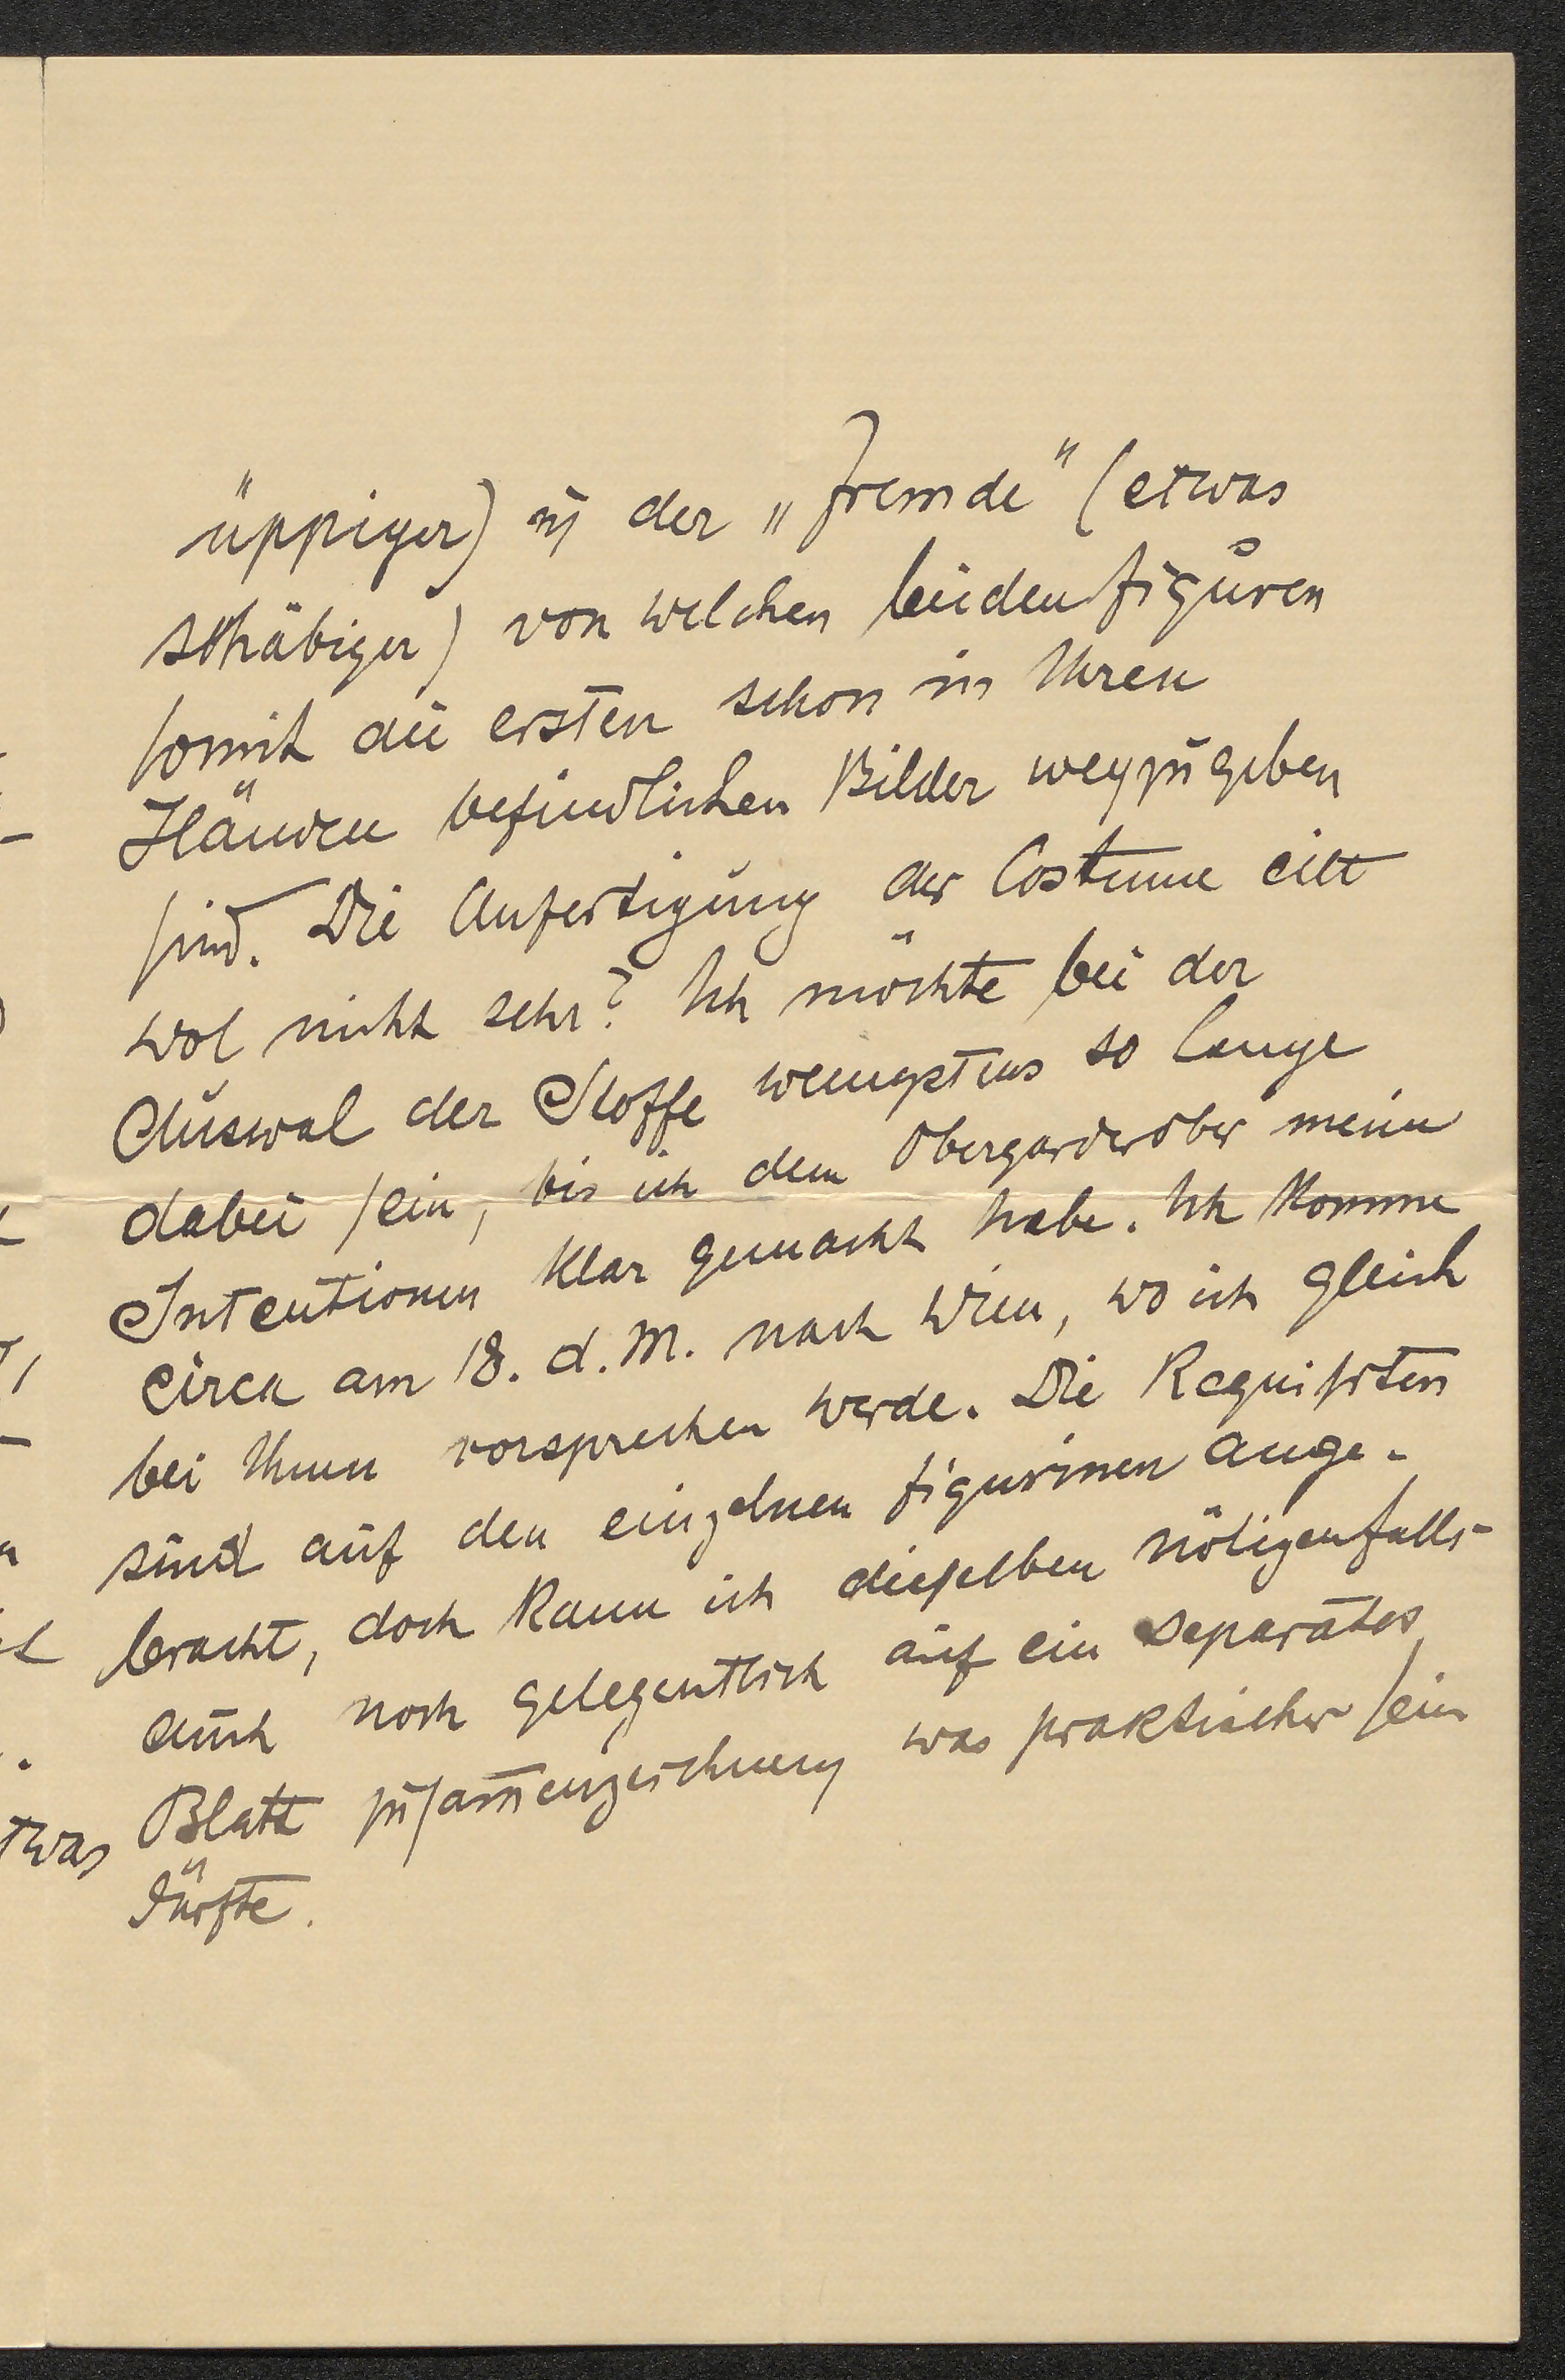 üppiger) u der „Fremde“ (etwas
schäbiger) von welchen beiden Figuren
somit die ersten schon in Ihren
Händen befindlichen Bilder wegzugeben
sind. Die Anfertigung der Costume eilt
wol nicht sehr? Ich möchte bei der
Auswal der Stoffe wenigstens so lange
dabei sein, bis ich dem Obergarderober meine
Intentionen klar gemacht habe. Ich komme
circa am 18. d. M. nach Wien, wo ich gleich
bei Ihnen vorsprechen werde. Die Requisiten
sind auf den einzelnen Figurinen ange-
bracht, doch kann ich dieselben nötigenfalls
auch noch gelegentlich auf ein separates
Blatt zusam̄enzeichnen was praktischer sein
dürfte.